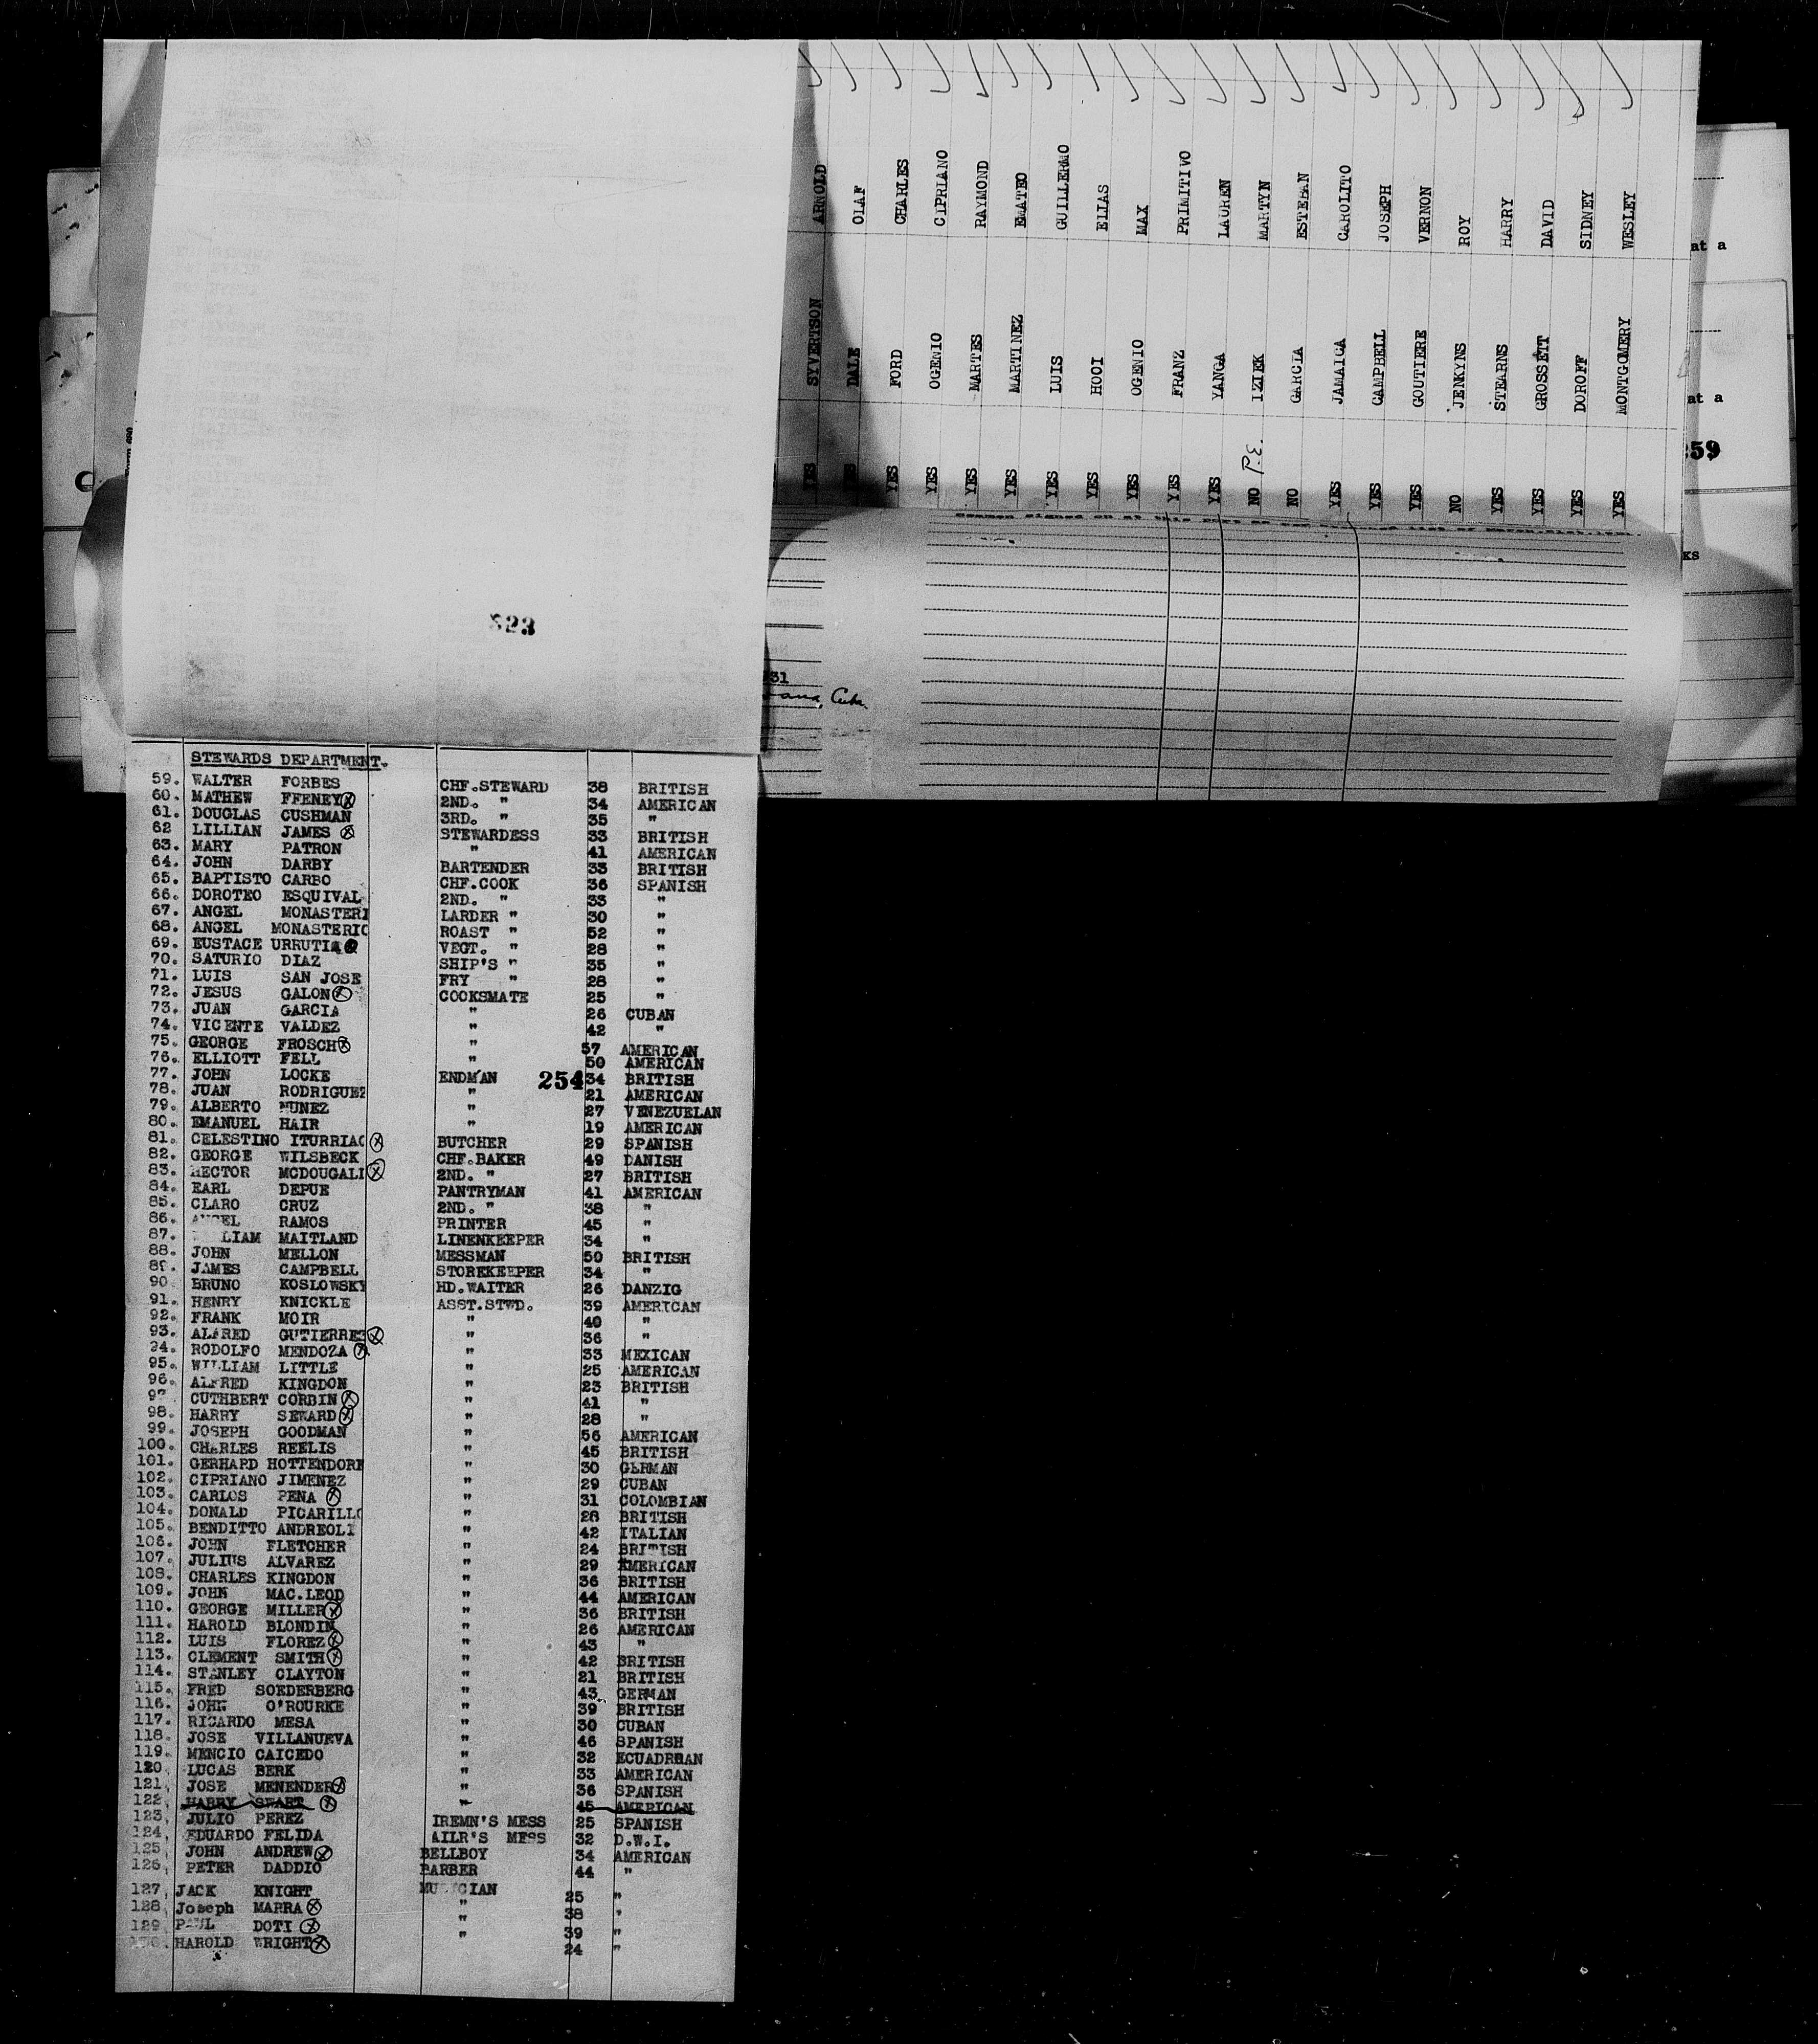 YES SYVERTSON ARNOLD
YES DALE OLAF
YES FORD CHARLES
YES OGENIO CIPRIANO
YES MARTES RAYMOND
YES MARTINEZ EMATEO
YES LUIS GUILLERMO
YES HOOI ELIAS
YES OGENIO MAX
YES FRANZ PRIMITIVO
YES YANGA LAUREN
NO IZIEK MARTYN
NO GARCIA ESTEBAN
YES JAMAICA CAROLITO
YES CAMPBELL JOSEPH
YES GOUTIERE VERNON
NO JENKYNS ROY
YES STEARNS HARRY
YES GROSSETT DAVID
YES DOROFF SIDNEY
YES MONTGOMERY WESLEY
at a
at a
59
ks
Seamen signed on at this port
323
31
Cuba
STEWARDS DEPARTMENT.
59. WALTER FORBES CHF.STEWARD 38 BRITISH
60. MATHEW FFENEY 2ND. " 34 AMERICAN
61. DOUGLAS CUSHMAN 3RD. " 35 "
62 LILLIAN JAMES STEWARDESS 33 BRITISH
63. MARY PATRON " 41 AMERICAN
64. JOHN DARBY BARTENDER 33 BRITISH
65. BAPTISTO CARBO CHF.COOK 36 SPANISH
66. DOROTEO ESQUIVAL 2ND. " 33 "
67. ANGEL MONASTERI LARDER " 30 "
68. ANGEL MONASTERIO ROAST " 52 "
69. EUSTACE URRUTIA VEGT. " 28 "
70. SATURIO DIAZ SHIP'S " 35 "
71. LUIS SAN JOSE FRY " 28 "
72. JESUS GALON COOKSMATE 25 "
73. JUAN GARCIA " 26 CUBAN
74. VICENTE VALDEZ " 42 "
75. GEORGE FROSCH " 57 AMERICAN
76. ELLIOTT FELL " 50 AMERICAN
77. JOHN LOCKE ENDMAN 254 34 BRITISH
78. JUAN RODRIGUEZ " 21 AMERICAN
79. ALBERTO NUNEZ " 27 VENEZUELAN
80. EMANUEL HAIR " 19 AMERICAN
81. CELESTINO ITURRIAG BUTCHER 29 SPANISH
82. GEORGE WILSBECK CHF.BAKER 49 DANISH
83. HECTOR MCDOUGALL 2ND. " 27 BRITISH
84. EARL DEPUE PANTRYMAN 41 AMERICAN
85. CLARO CRUZ 2ND. " 38 "
86. ANGEL RAMOS PRINTER 45 "
87. LIAM MAITLAND LINENKEEPER 34 "
88. JOHN MELLON MESSMAN 50 BRITISH
89. JAMES CAMPBELL STOREKEEPER 34 "
90. BRUNO KOSLOWSKY HD.WAITER 26 DANZIG
91. HENRY KNICKLE ASST.STWD. 39 AMERICAN
92. FRANK MOIR " 40 "
93. ALFRED GUTIERREZ " 36 "
94. RODOLFO MENDOZA " 33 MEXICAN
95. WILLIAM LITTLE " 25 AMERICAN
96. ALFRED KINGDON " 23 BRITISH
97 CUTHBERT CORBIN " 41 "
98. HARRY SEWARD " 28 "
99. JOSEPH GOODMAN " 56 AMERICAN
100. CHARLES REELIS " 45 BRITISH
101. GERHARD HOTTENDORF " 30 GERMAN
102. CIPRIANO JIMENEZ " 29 CUBAN
103. CARLOS PENA " 31 COLOMBIAN
104. DONALD PICARILLO " 28 BRITISH
105. BENDITTO ANDREOLI " 42 ITALIAN
106. JOHN FLETCHER " 24 BRITISH
107. JULIUS ALVAREZ " 29 AMERICAN
108. CHARLES KINGDON " 36 BRITISH
109. JOHN MAC.LEOD " 44 AMERICAN
110. GEORGE MILLER " 36 BRITISH
111. HAROLD BLONDIN " 26 AMERICAN
112. LUIS FLOREZ " 43 "
113. CLEMENT SMITH " 42 BRITISH
114. STANLEY CLAYTON " 21 BRITISH
115. FRED SOEDERBERG " 43 GERMAN
116. JOHN O'ROURKE " 39 BRITISH
117. RICARDO MESA " 30 CUBAN
118. JOSE VILLANUEVA " 46 SPANISH
119. MENCIO CAICEDO " 32 ECUADREAN
120 LUCAS BERK " 33 AMERICAN
121, JOSE MENENDER " 36 SPANISH
122, HARRY SWART " 45 AMERICAN
123, JULIO PEREZ IREMN'S MESS 25 SPANISH
124, EDUARDO FELIDA AILR'S MESS 32 D.W.I.
125, JOHN ANDREW BELLBOY 34 AMERICAN
126, PETER DADDIO BARBER 44 "
127, JACK KNIGHT MUSICIAN 25 "
128, Joseph MARRA " 38 "
129, PAUL DOTI " 39 "
130. HAROLD WRIGHT " 24 "